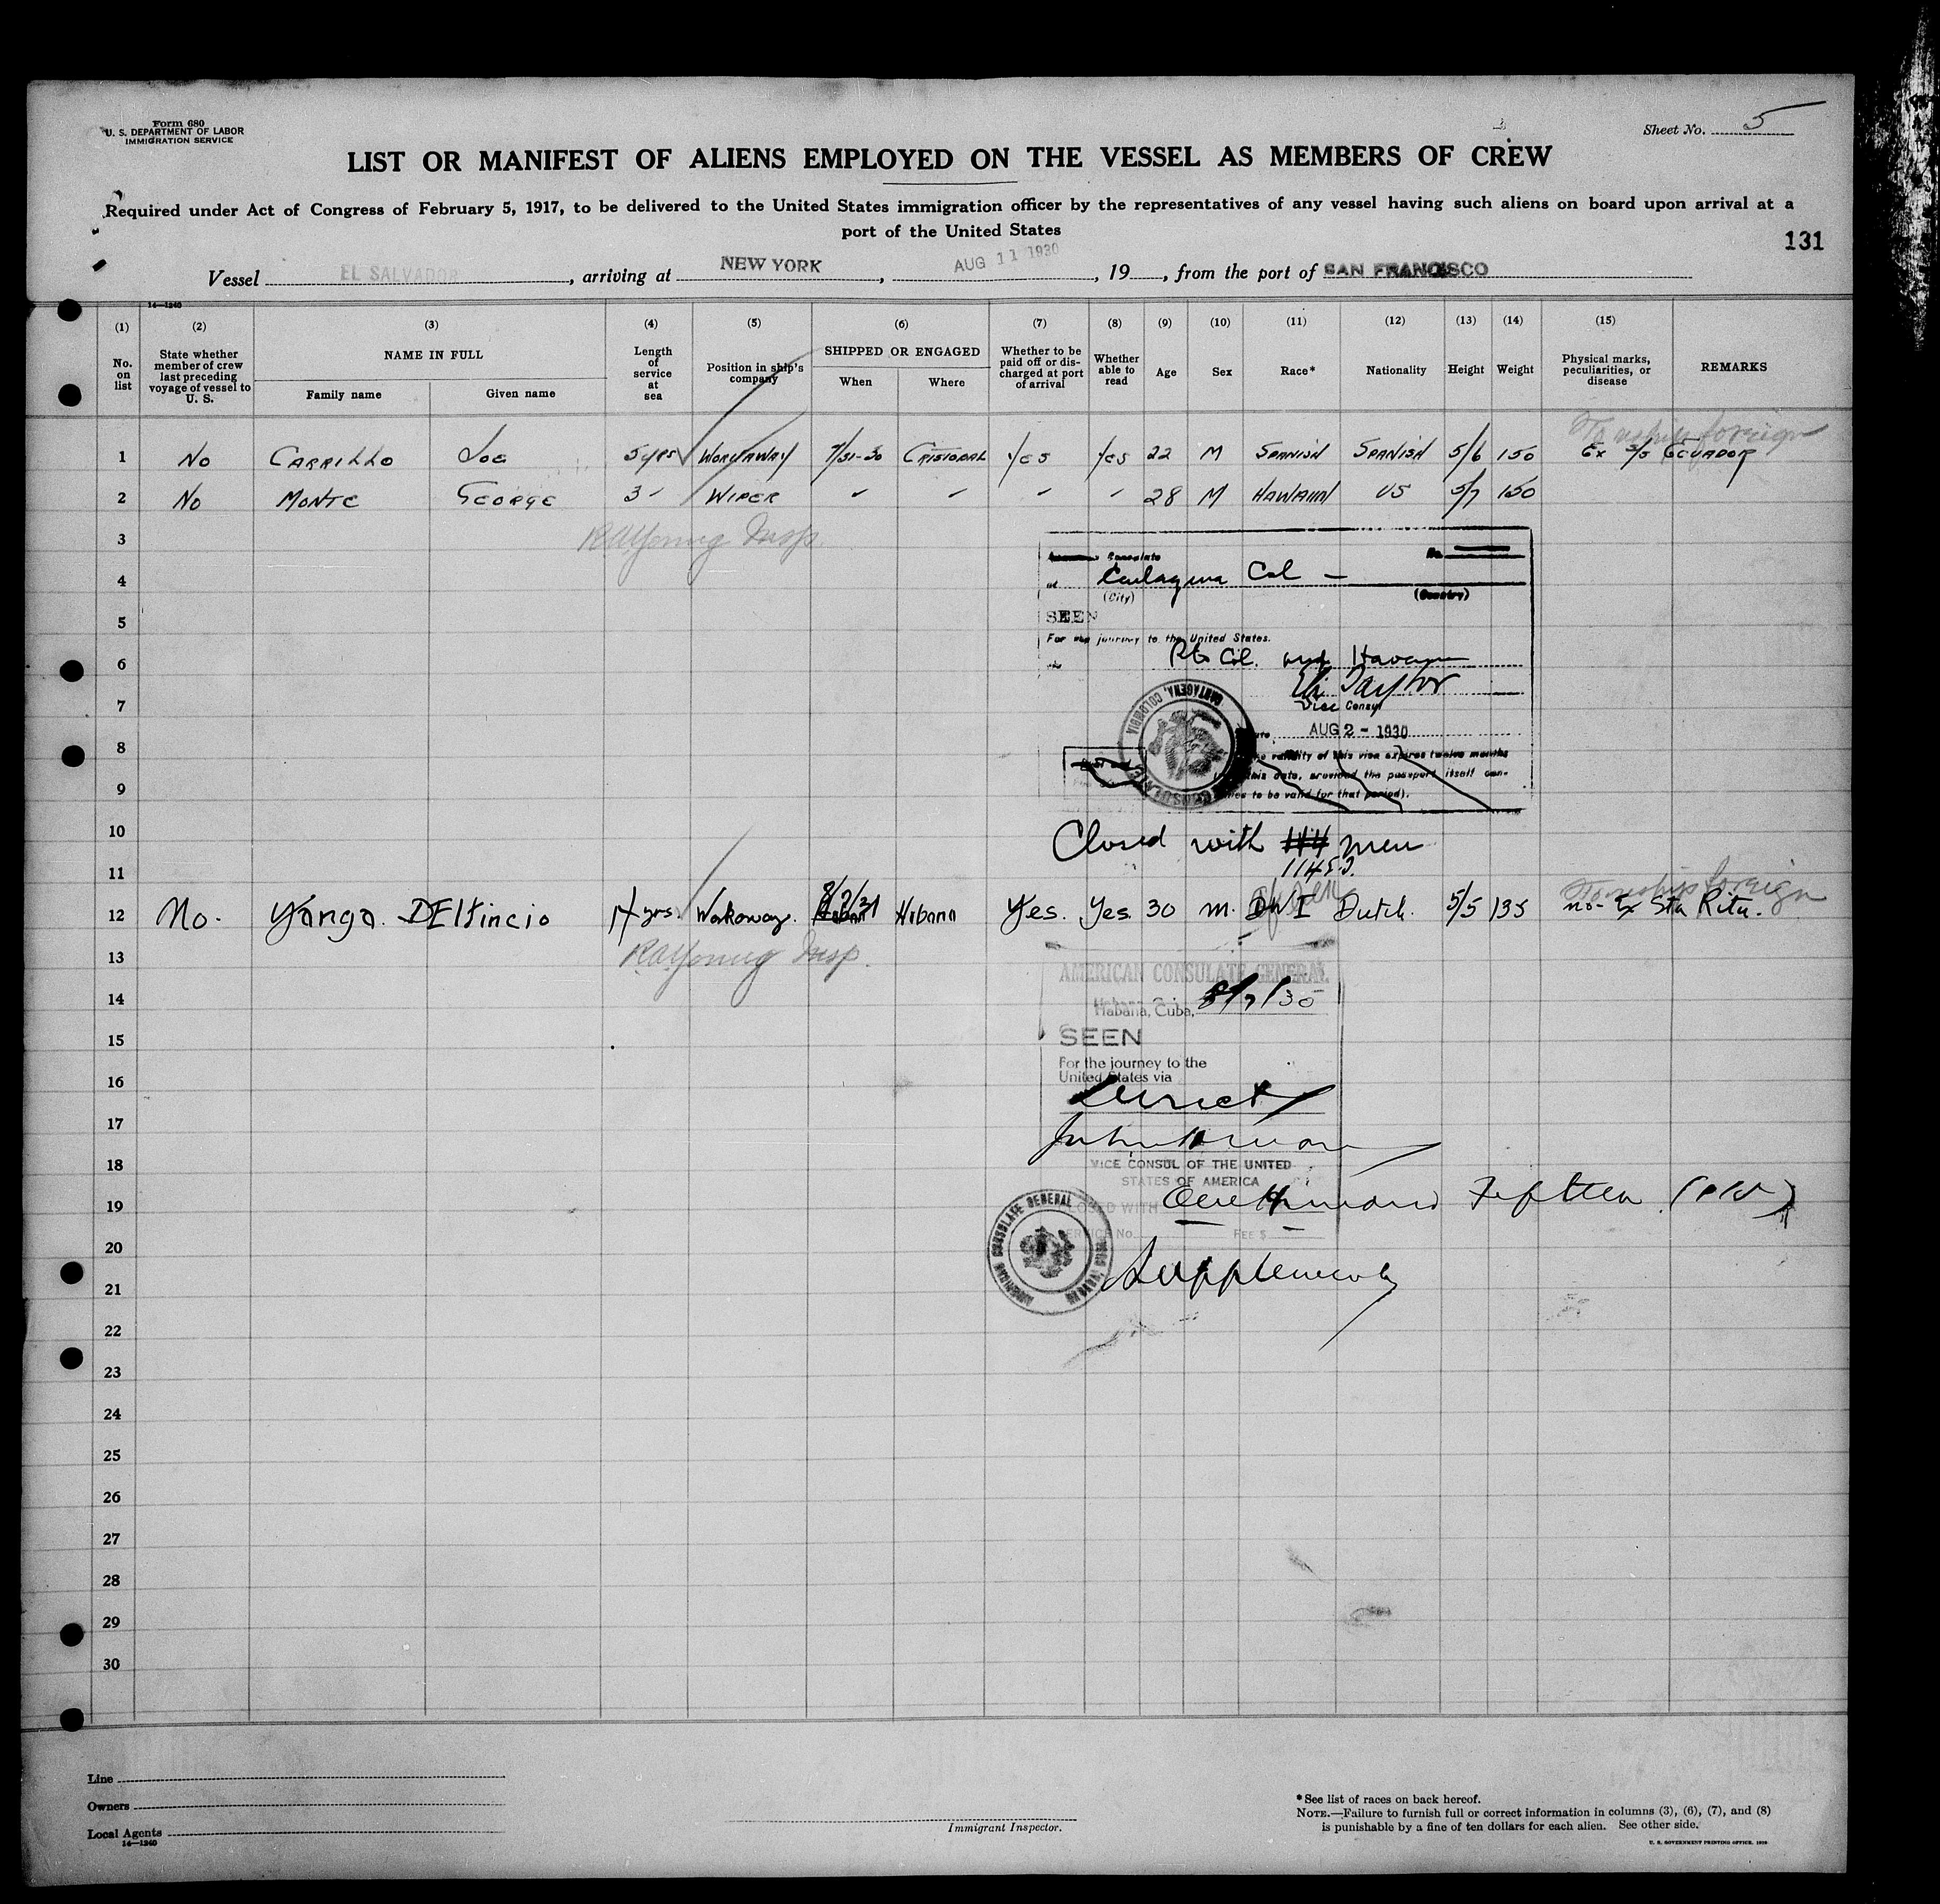 Form 680
U. S. DEPARTMENT OF LABOR
IMMIGRATION SERVICE
Sheet No. 5
LIST OR MANIFEST OF ALIENS EMPLOYED ON THE VESSEL AS MEMBERS OF CREW
Required under Act of Congress of February 5, 1917, to be delivered to the United States immigration officer by the representatives of any vessel having such aliens on board upon arrival at a
port of the United States
131
Vessel EL SALVADOR, arriving at NEW YORK, AUG 11 1930, 19, from the port of SAN FRANCISCO
14—1240
(1) (2) (3) (4) (5) (6) (7) (8) (9) (10) (11) (12) (13) (14) (15)
No. on list
State whether member of crew last preceding voyage of vessel to U. S.
NAME IN FULL
Family name
Given name
Length of service at sea
Position in ship's company
SHIPPED OR ENGAGED
When
Where
Whether to be paid off or discharged at port of arrival
Whether able to read
Age
Sex
Race*
Nationality
Height
Weight
Physical marks, peculiarities, or disease
REMARKS
Tranship foreign
1 No CARRILLO JOE 5 yrs WORKAWAY 7/31-30 CRISTOBAL YES YES 22 M SPANISH SPANISH 5/6 150 Ex M/S ECUADOR
2 No MONTE GEORGE 3 WIPER 28 M HAWAIIN US 5/7 150
3 RAYoung Insp.
Consulate No.
4 at Cartagena Col
(City) (Country)
5 SEEN
For the journey to the United States.
6 Pto Col. and Havana
Taylor
7 Vice Consul
CARTAGENA, COLOMBIA
8 AUG 2 - 1930
validity of this visa expires twelve months
this date, provided the passport itself con-
9 to be valid for that period).
10 Closed with 114 men
11 114
Tranship foreign
12 No. Yanga DEltincio 4 yrs. Workaway. Habana Yes. Yes. 30 M. Dutch. 5/5 135 no- Ex Sta Rita.
13 RAYoung Insp.
AMERICAN CONSULATE GENERAL
14 Habana, Cuba, 8/7/30
15 SEEN
For the journey to the
16 United States via
Direct
17
18 VICE CONSUL OF THE UNITED
STATES OF AMERICA
19 CLOSED WITH One Thousand Fifteen
20 SERVICE No. FEE $
AMERICAN CONSULATE GENERAL
21 Supplemental
22
23
24
25
26
27
28
29
30
Line
Owners
Local Agents
14—1240
Immigrant Inspector.
*See list of races on back hereof.
NOTE.—Failure to furnish full or correct information in columns (3), (6), (7), and (8)
is punishable by a fine of ten dollars for each alien. See other side.
U. S. GOVERNMENT PRINTING OFFICE, 1929